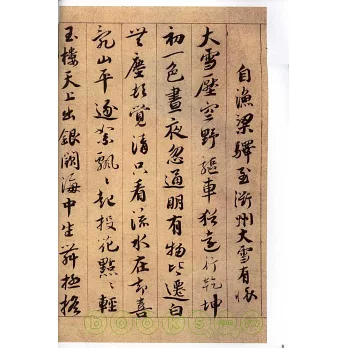 自漁梁驛至衢州大雪有懷
大雪壓空野驅車猶遠行乾坤
初一色晝夜忽通明有物皆遷白
無塵頓覺清只看流水在却喜
亂山平逐絮飄〻起投花點〻輕
玉樓天上出銀闕海中生舞極
books